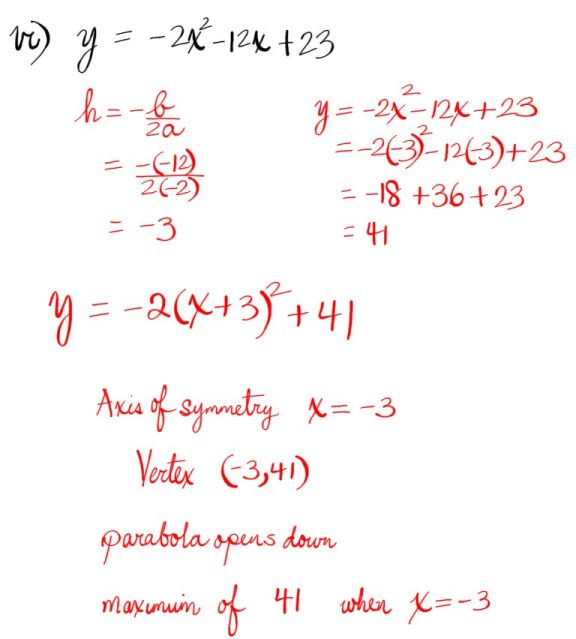 vi) y = -2x² - 12x + 23
h = -b/2a
= -(-12)/2(-2)
= -3
y = -2x² - 12x + 23
= -2(-3)² - 12(-3) + 23
= -18 + 36 + 23
= 41
y = -2(x+3)² + 41
Axis of symmetry x = -3
Vertex (-3,41)
parabola opens down
maximum of 41 when x = -3